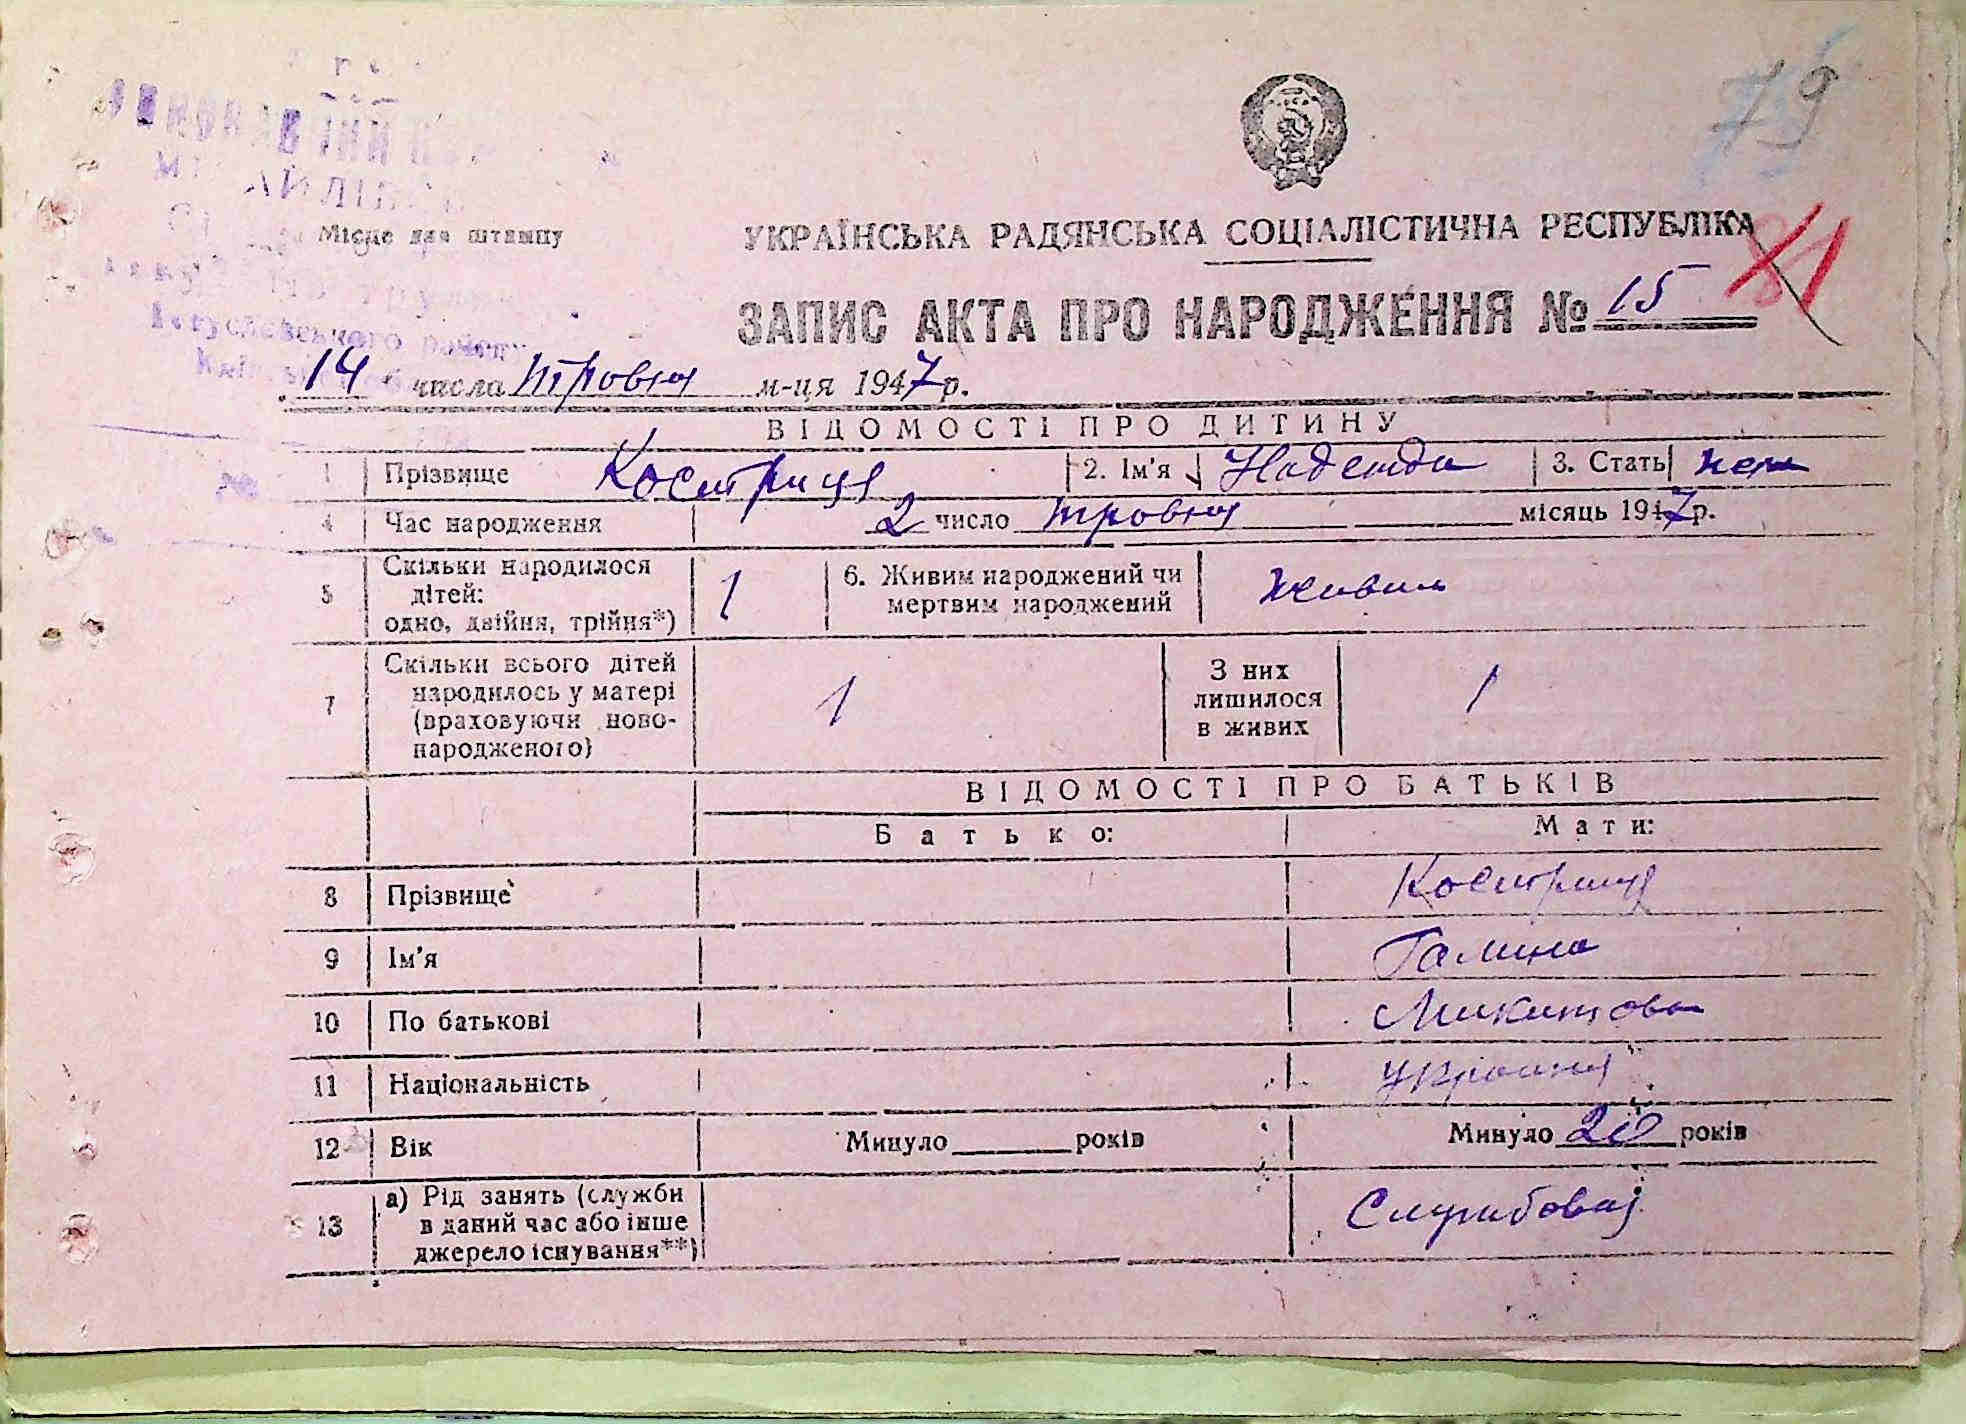 79
81
Місце для штампу
УКРАЇНСЬКА РАДЯНСЬКА СОЦІАЛІСТИЧНА РЕСПУБЛІКА
ЗАПИС АКТА ПРО НАРОДЖЕННЯ № 15
14 числа травня м-ця 1947 р.
ВІДОМОСТІ ПРО ДИТИНУ
1 Прізвище Костриця 2. Ім'я Надежда 3. Стать жен
4 Час народження 2 число травня місяць 1947 р.
5 Скільки народилося
дітей:
одно, двійня, трійня*) 1 6. Живим народжений чи
мертвим народжений живим
7 Скільки всього дітей
народилось у матері
(враховуючи ново-
народженого) 1 З них
лишилося
в живих 1
ВІДОМОСТІ ПРО БАТЬКІВ
Батько: Мати:
8 Прізвище Костриця
9 Ім'я Галина
10 По батькові Микитовна
11 Національність
12 Вік Минуло років Минуло 20 років
13 а) Рід занять (служби
в даний час або інше
джерело існування**)